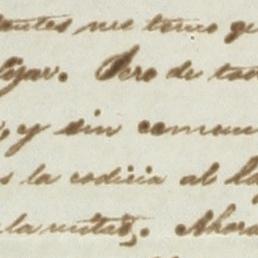 antes me temo qu
ejar. Pero de tan
, y sin comun
s la codicia al
la mitad,. Ahora